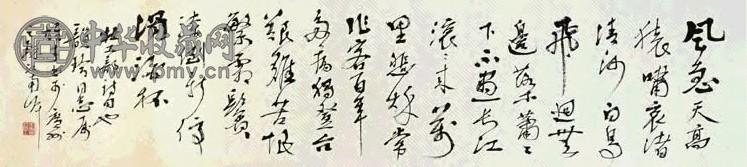 風急天高
猿嘯哀渚
清沙白鳥
飛迴無
邊落木蕭〻
下不盡長江
滾〻來萬
里悲秋常
作客百年
多病獨登台
艱難苦恨
繁霜鬢
潦倒新停
濁酒杯
杜工部詩句也
同志属
中华收藏网